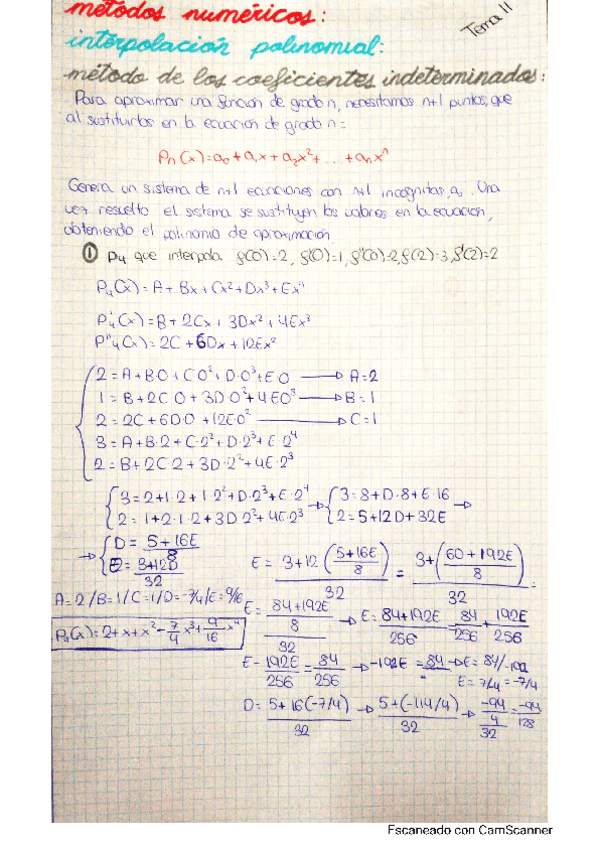 métodos numéricos:
Tema 11
interpolación polinomial:
método de los coeficientes indeterminados:
Para aproximar una función de grado n, necesitamos n+1 puntos, que
al sustituirlos en la ecuación de grado n:
Pn(x)=a₀+a₁x+a₂x²+...+aₙxⁿ
Genera un sistema de n+1 ecuaciones con n+1 incognitas, a. Una
vez resuelto el sistema se sustituyen los valores en la ecuación,
obteniendo el polinomio de aproximación
① P₄ que interpola f(0)=2, f'(0)=1, f''(0)=2, f(2)=3, f'(2)=2
P₄(x)=A+Bx+Cx²+Dx³+Ex⁴
P'₄(x)=B+2Cx+3Dx²+4Ex³
P''₄(x)=2C+6Dx+12Ex²
2=A+B·0+C·0²+D·0³+E·0 → A=2
1=B+2C·0+3D·0²+4E0³ → B=1
2=2C+6D·0+12E0² → C=1
3=A+B·2+C·2²+D·2³+E·2⁴
2=B+2C·2+3D·2²+4E·2³
3=2+1·2+1·2²+D·2³+E·2⁴ → 3=8+D·8+E·16 →
2=1+2·1·2+3D·2²+4E·2³ 2=5+12D+32E
→ D=5+16E/8
E=3+12D/32
E=3+12(5+16E/8)/32=3+(60+192E/8)/32=
A=2/B=1/C=1/D=-7/4/E=9/16
P₄(x)=2+x+x²-7/4x³+9/16x⁴
E=84+192E/8/32 → E=84+192E/256 84/256+192E/256
E-192E/256=84/256 → -192E=84 → E=84/-192
E=7/4=-7/4
D=5+16(-7/4)/32 → 5+(-114/4)/32 → -94/4/32=-94/128
Escaneado con CamScanner